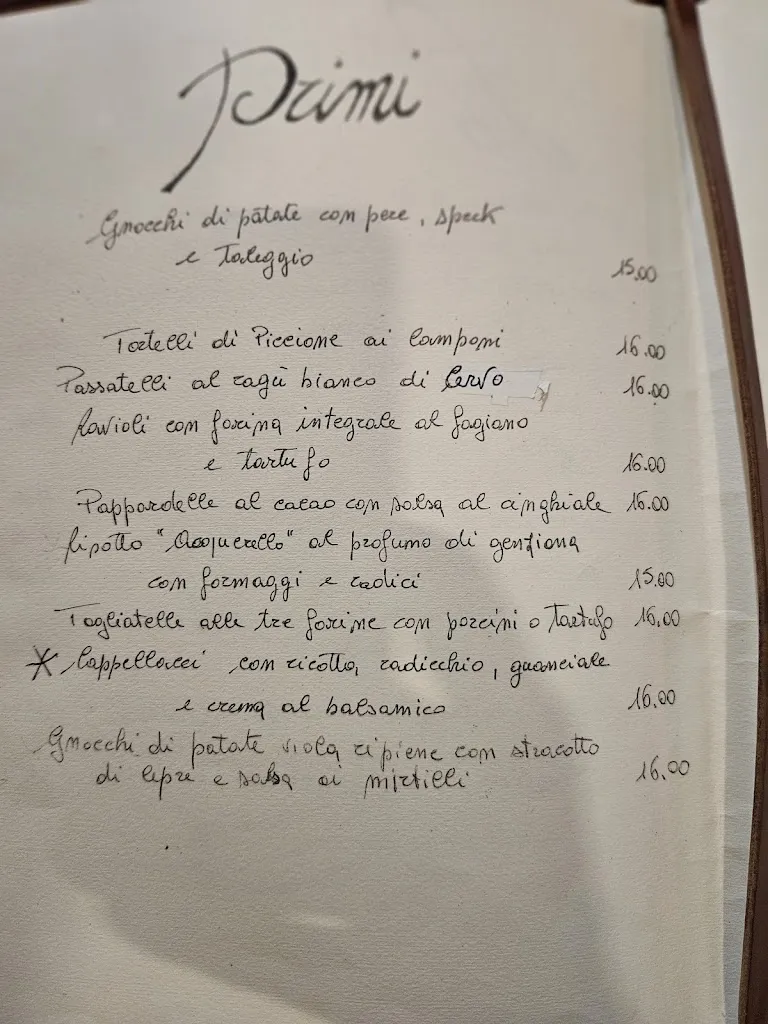 Primi
Gnocchi di patate con pere, speck
e Taleggio 15.00
Tortelli di Piccione ai lamponi 16.00
Passatelli al ragù bianco di Cervo 16.00
Ravioli con farina integrale al fagiano
e tartufo 16.00
Pappardelle al cacao con salsa al cinghiale 16.00
Risotto "Acquerello" al profumo di genziana
con formaggi e radici 15.00
Tagliatelle alle tre farine con porcini o Tartufo 16,00
* Cappellacci con ricotta, radicchio, guanciale
e crema al balsamico 16.00
Gnocchi di patate viola ripiene con stracotto
di lepre e salsa ai mirtilli 16.00